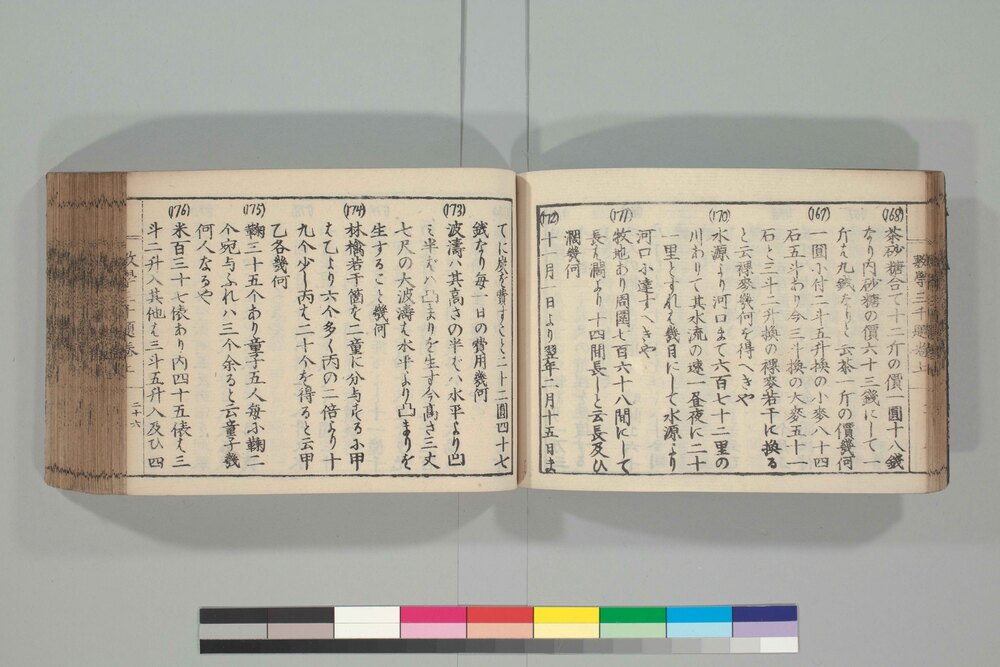 (168)
茶砂糖合て十二斤の價一圓十八錢
なり内砂糖の價六十三錢にして一
斤は九錢なりと云茶一斤の價幾何
(169)
一圓小付二斗五升換の小麥八十四
石五斗わり今三斗換の大麥五十一
石と三斗二升換の裸麥若干に換る
と云裸麥幾何を得へきや
(170)
水源より河口まて六百七十三里の
川わりて其水流の速一昼夜に二十
里とすれは幾日にして水源より
河口小達すへきや
(171)
牧地あり周圍七百六十八間にして
長は濶より十四間長しと云長及ひ
濶幾何
(172)
十一月一日より翌年二月十五日ま
てに炭を費すこと二十二圓四十七
錢なり毎一日の費用幾何
(173)
波濤ハ其高さの半ハ水平より凹
ミ半ハ凸まりを生す今高さ三丈
七尺の大波濤は水平より凸まりを
生すること幾何
(174)
林檎若干箇を二童に分与する小甲
は乙より六个多く丙の二倍より十
九个少し丙は二十个を得ると云甲
乙各幾何
(175)
鞠三十五个あり童子五人毎小鞠二
个宛与ふれハ三个余ると云童子幾
何人なるや
(176)
米百三十七俵あり内四十五俵は三
斗二升入其他は三斗五升入及ひ四
數學三千題卷上
二十六